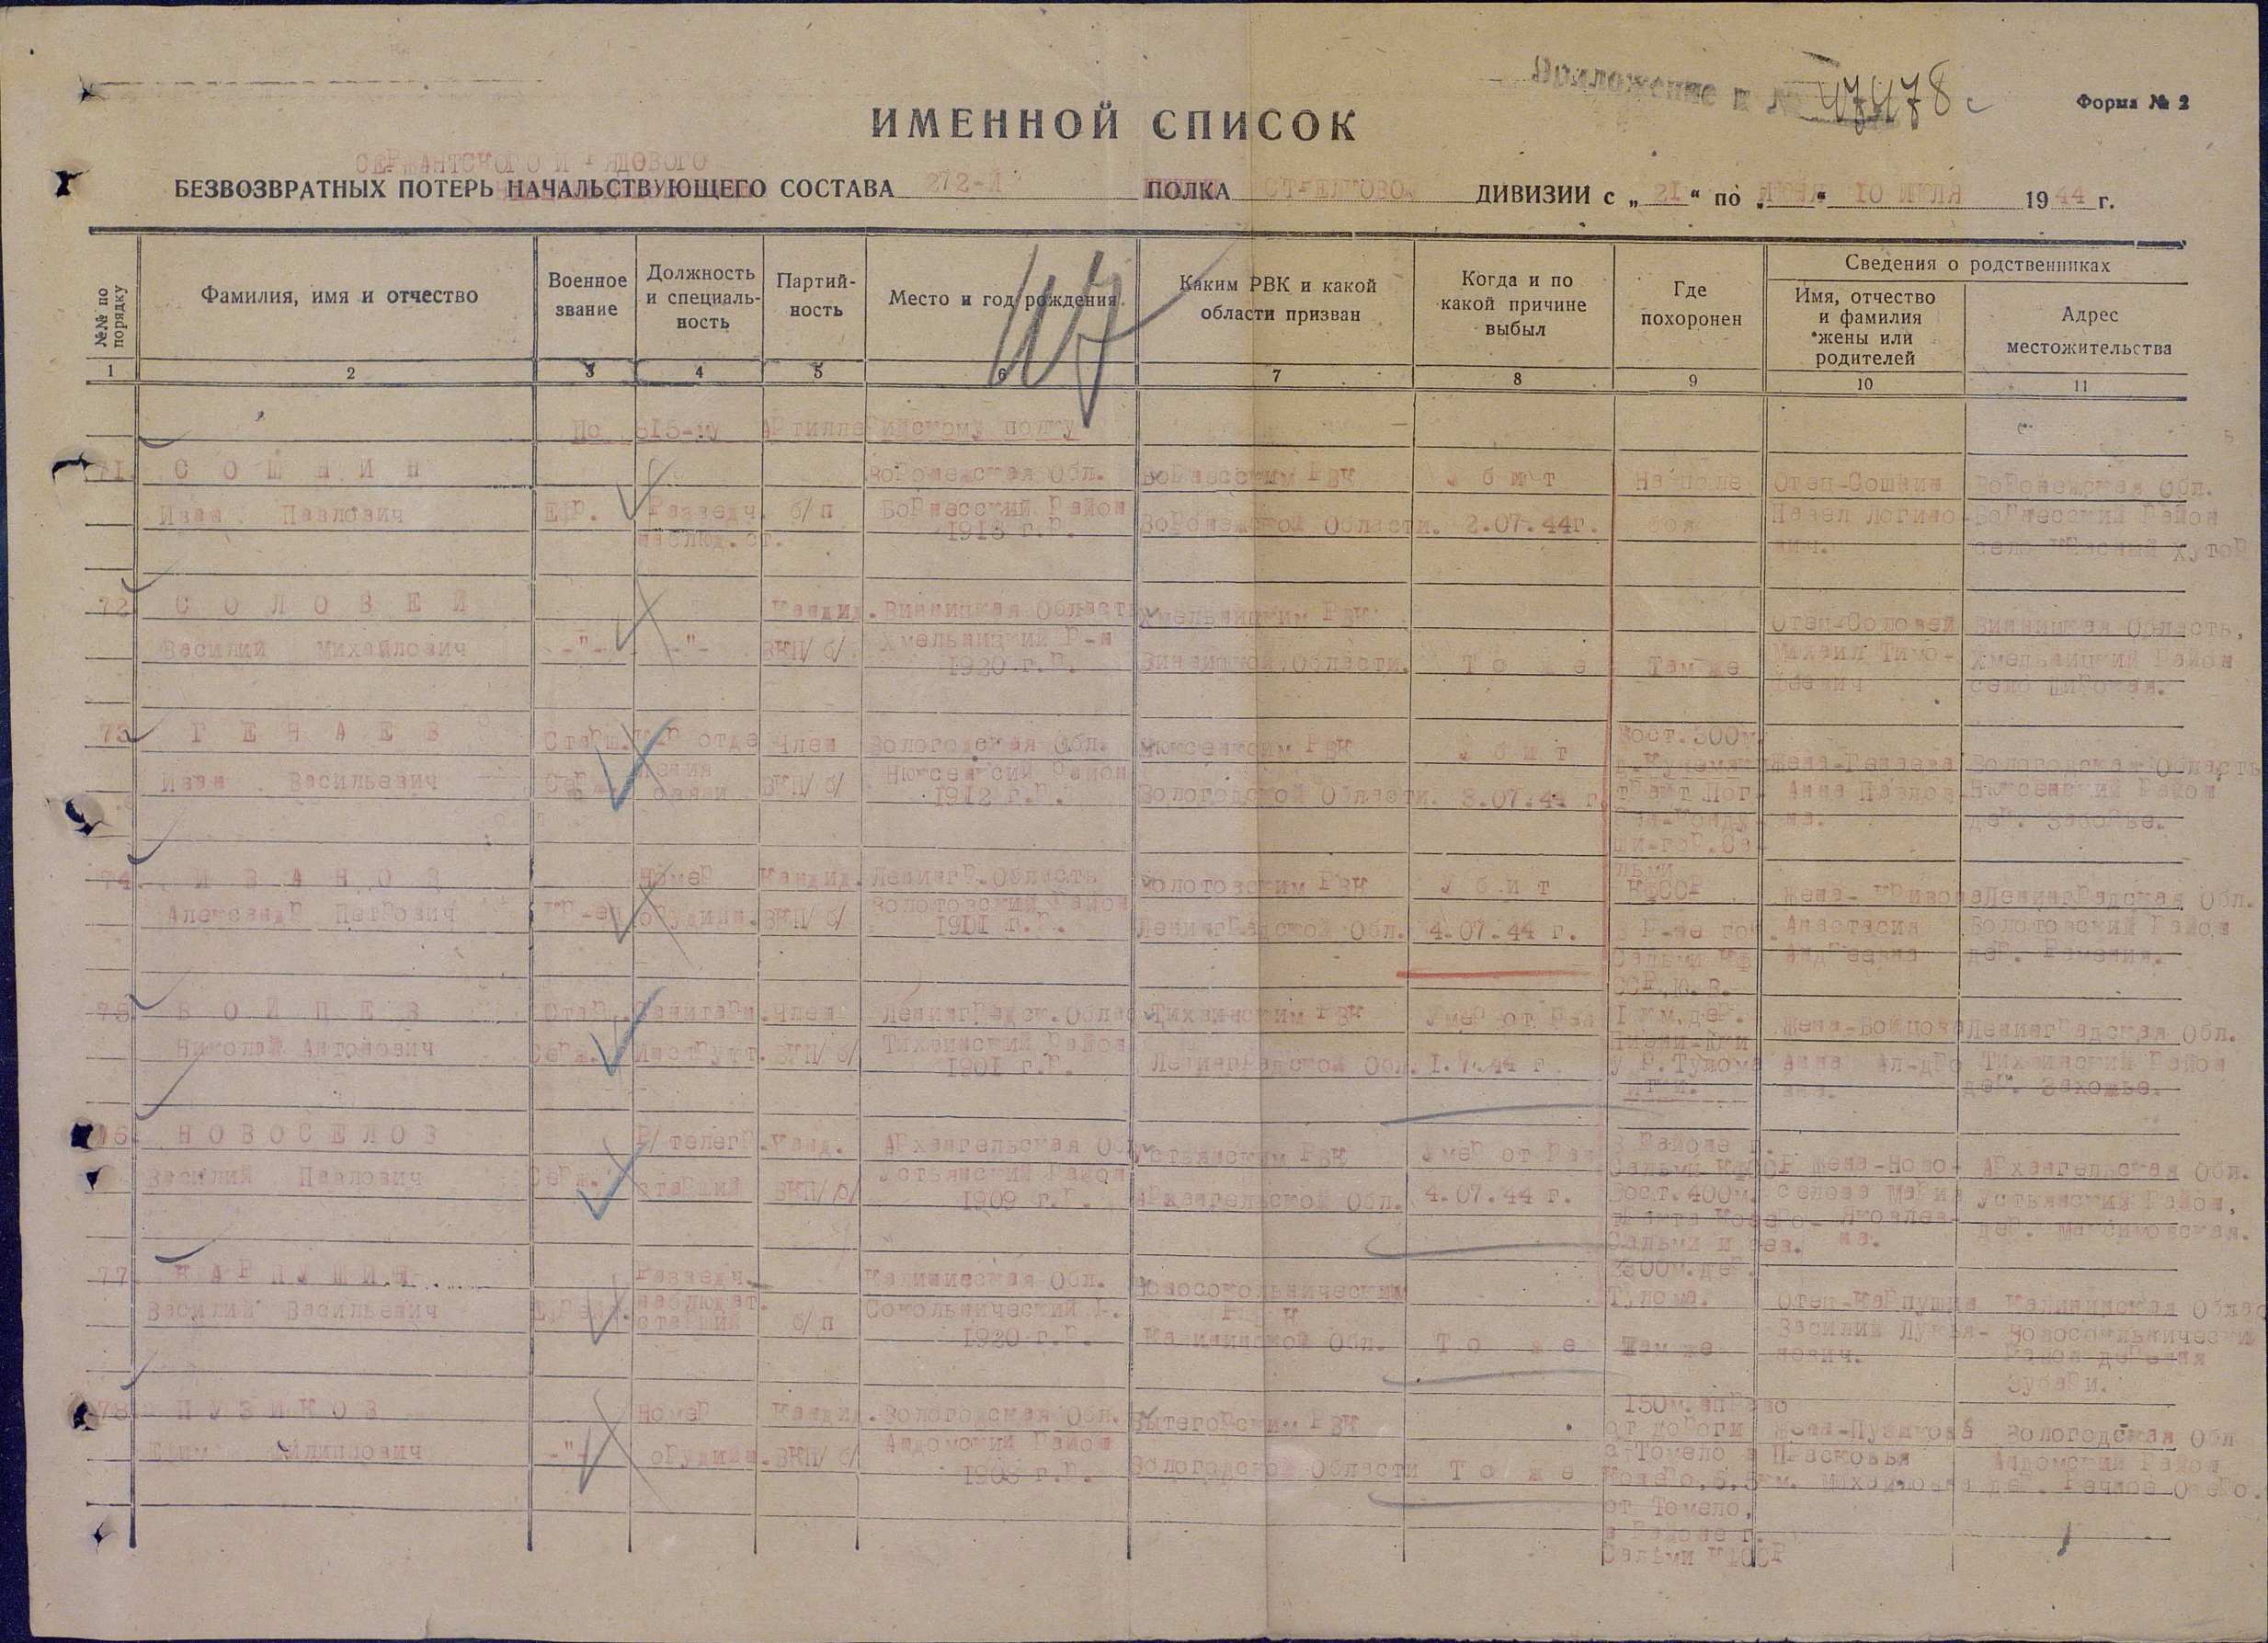 Приложение к № 47478с
Форма № 2
ИМЕННОЙ СПИСОК
СЕРЖАНТСКОГО И РЯДОВОГО
БЕЗВОЗВРАТНЫХ ПОТЕРЬ НАЧАЛЬСТВУЮЩЕГО СОСТАВА 272-Й ПОЛКА СТРЕЛКОВОЙ ДИВИЗИИ с „ 21 “ по „ ИЮНЯ “ 10 ИЮЛЯ 19 44 г.
№№ по порядку
Фамилия, имя и отчество
Военное звание
Должность и специальность
Партийность
Место и год рождения
Каким РВК и какой области призван
Когда и по какой причине выбыл
Где похоронен
Сведения о родственниках
Имя, отчество и фамилия жены или родителей
Адрес местожительства
1 2 3 4 5 6 7 8 9 10 11
117
По 815-му Артиллерийскому полку
71. СОШНИН Воронежская Обл. Борисоглебским РВК Убит На поле Отец-Сошнин Воронежская Обл.
Иван Павлович Ефр. Разведч. б/п Район Воронежской Области. 2.07.44г. боя Павел Логино- Район
наблюд. ст. 1918 г.р. вич. село Красный Хутор
72. СОЛОВЕЙ Кандид. Винницкая Област Хмельницким РВК Отец-Соловей Винницкая Область,
Василий Михайлович -"- -"- ВКП/б/ Хмельницкий Р-н Винницкой Области. То же Там же Михаил Тимо- Хмельницкий Район
1920 г.р. феевич село Широкая.
73. ГЕНАЕВ Старш. К-р отде Член Вологодская Обл. Нюксенским РВК Убит Вост. 300 м. Жена-Генаева Вологодская Область
Иван Васильевич Сер. ления связи ВКП/б/ Нюксенский Район Вологодской Области. 3.07.4. г. тракт Анна Павлов- Нюксенский Район
1912 г.р. на. дер. Заборье.
74. ИВАНОВ Номер Кандид. Ленингр. Область Волотовским РВК Убит КФССР Жена- Ленинградская Обл.
Александр Петрович Кр-ец орудийн. ВКП/б/ Волотовский Район Ленинградской Обл. 4.07.44 г. В р-не гор. Анастасия Волотовский Район
1901 г.р. Сальми КФ Андреевна дер. Раменье.
ССР, Ю. В.
75. БОЙЦЕВ Стар. Санитарн. Член Ленинградск. Облас Тихвинским РВК Умер от ран 1 км. дер. Жена-Бойцова Ленинградская Обл.
Николай Антонович Серж. Инструкт. ВКП/б/ Тихвинский Район Ленинградской Обл. 1.7.44 г. у р. Тулома Анна Ал-дро Тихвинский Район
1901 г.р. вна. дер. Захожье.
76. НОВОСЕЛОВ Р/телегр. Канд. Архангельская Об Устьянским РВК Умер от ран В районе г. Жена-Ново- Архангельская Обл.
Василий Павлович Серж. старший ВКП/б/ Устьянский Район Архангельской Обл. 4.07.44 г. Вост. 400м. селова Мария Устьянский Район,
1909 г.р. Яковлев- дер. Максимовская.
на.
77. КАРПУШИН Разведч. Калининская Обл. Новосокольническим 2300м. дер. Отец-Карпушин Калининская Облас
Василий Васильевич Ефрейт. наблюдат. старший б/п Сокольнический р. РВК Тулома. Василий Лукья- Новосокольнически
1920 г.р. Калининской Обл. То же Там же нович. Район деревня
Зубари.
78. ПУЗИКОВ Номер Кандид. Вологодская Обл. Вытегорским РВК 150м. вправо Жена-Пузикова Вологодская Обл
Ефим Филиппович -"- орудийн. ВКП/б/ Андомский Район Вологодской Области То же от дороги Прасковья Андомский Район
1906 г.р. Михайловна дер. Речное Озеро.
от Томело,
в Районе г.
Сальми КФССР